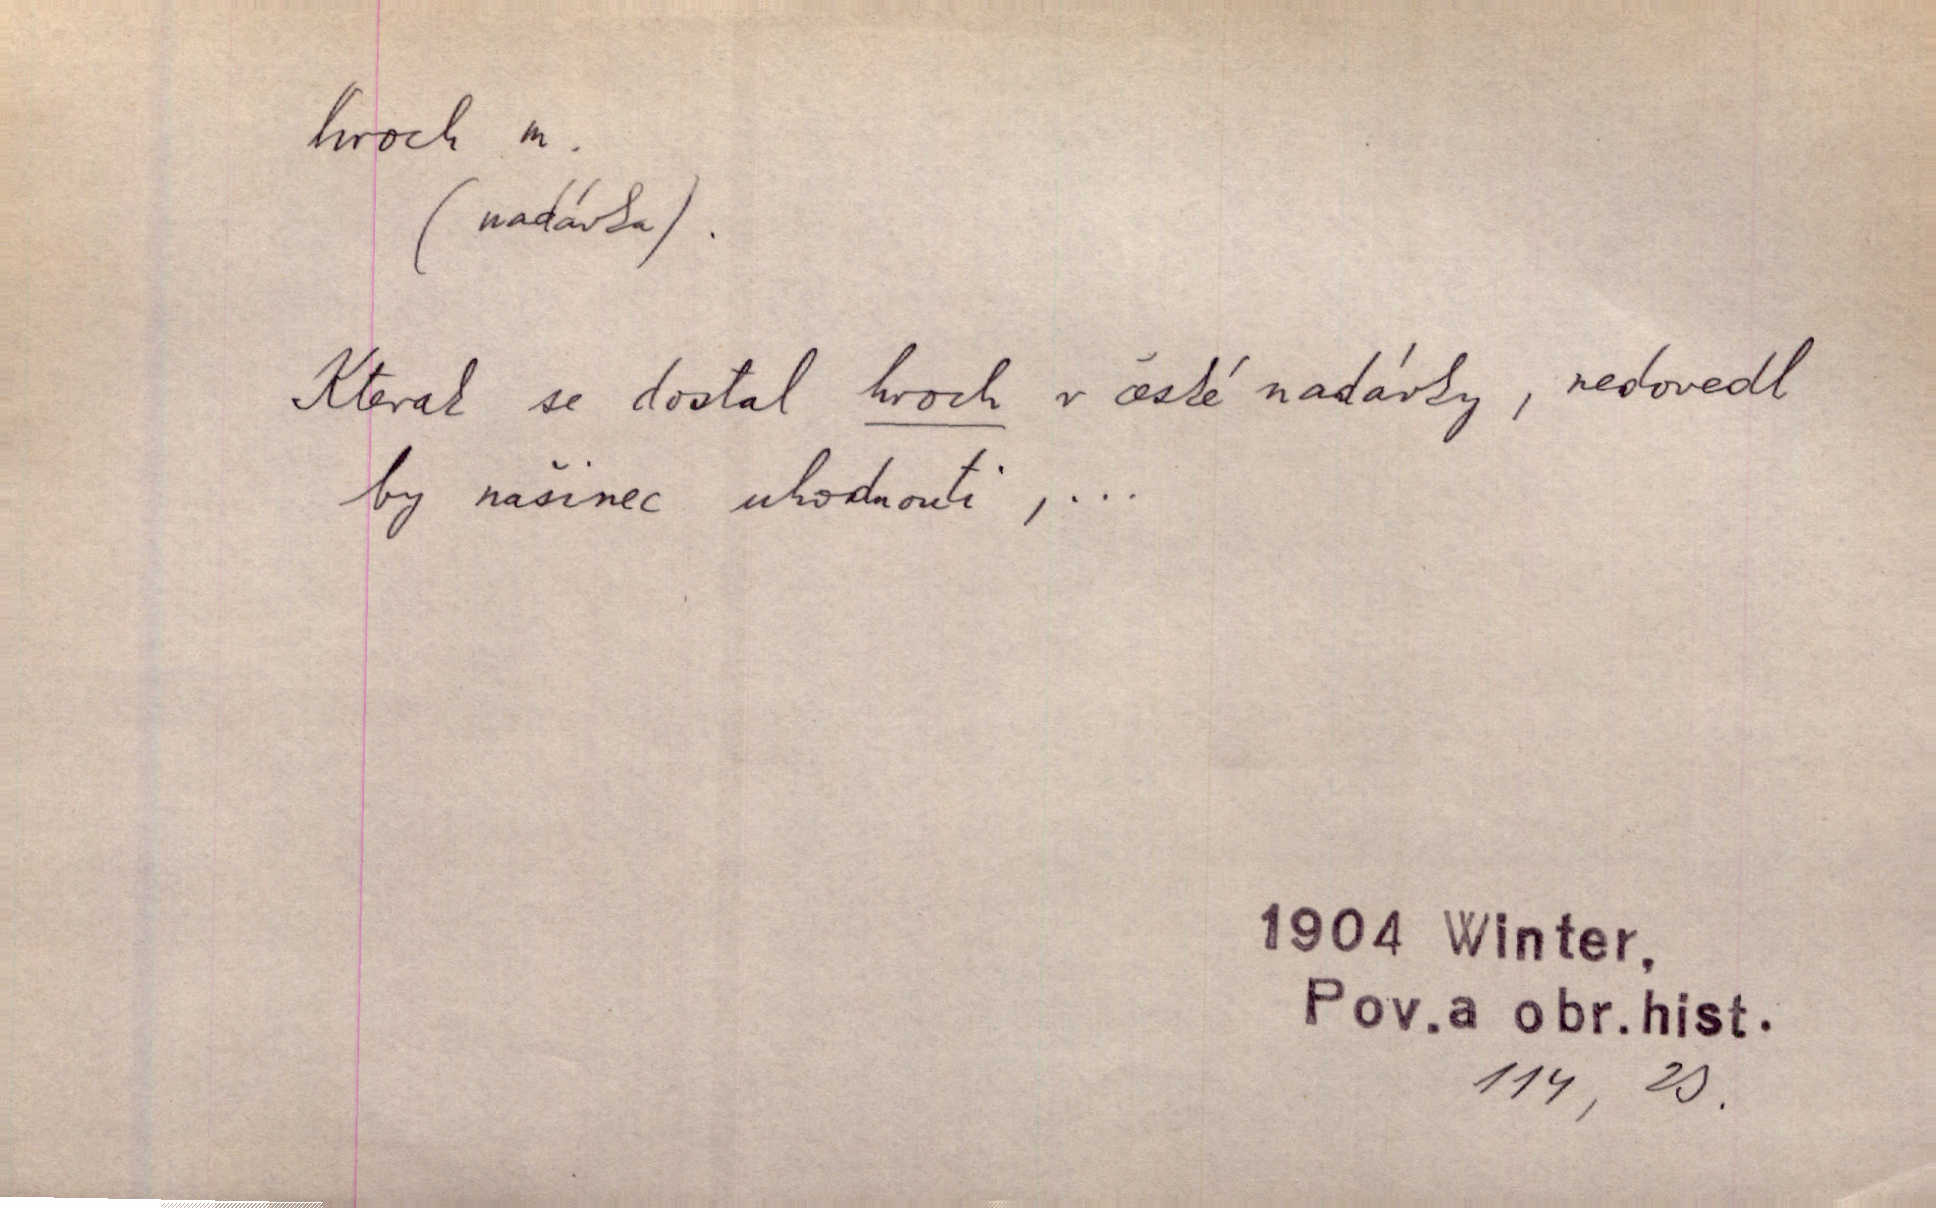 hroch m.
(nadávka).
Kterak se dostal hroch v české nadávky, nedovedl
by našinec uhodnouti,...
1904 Winter,
Pov.a obr.hist.
114,